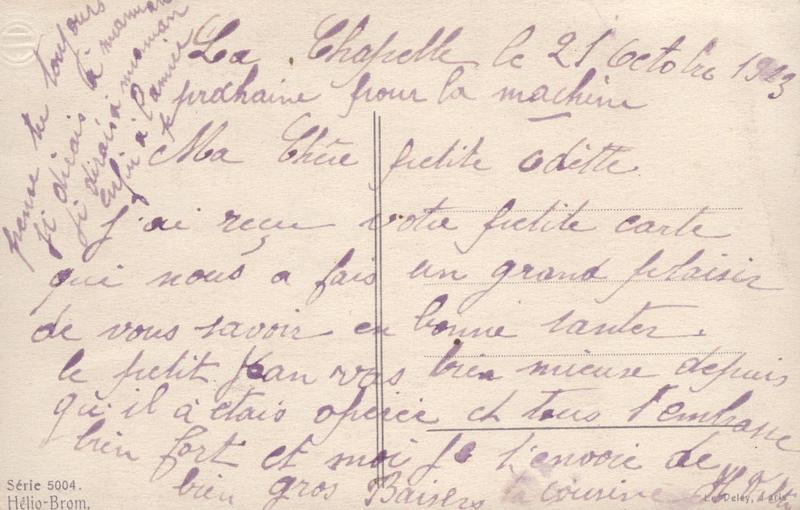 La Chapelle le 21 Octobre 1923
prohaine pour la machine
Ma Chère petite Odette
j'ai reçu votre petite carte
qui nous a fais un grand plaisir
de vous savoir en bonne santer.
le petit Jean vas bien mieuse depuis
qu'il à étais opérée et tous t'embrasse
bien fort et moi je t'envoie de
bien gros Baisers ta cousine
pense tu toujours
si disais à maman
si dirais à maman
enfin à l'année
Série 5004.
Hélio-Brom.
Le Deley, Paris